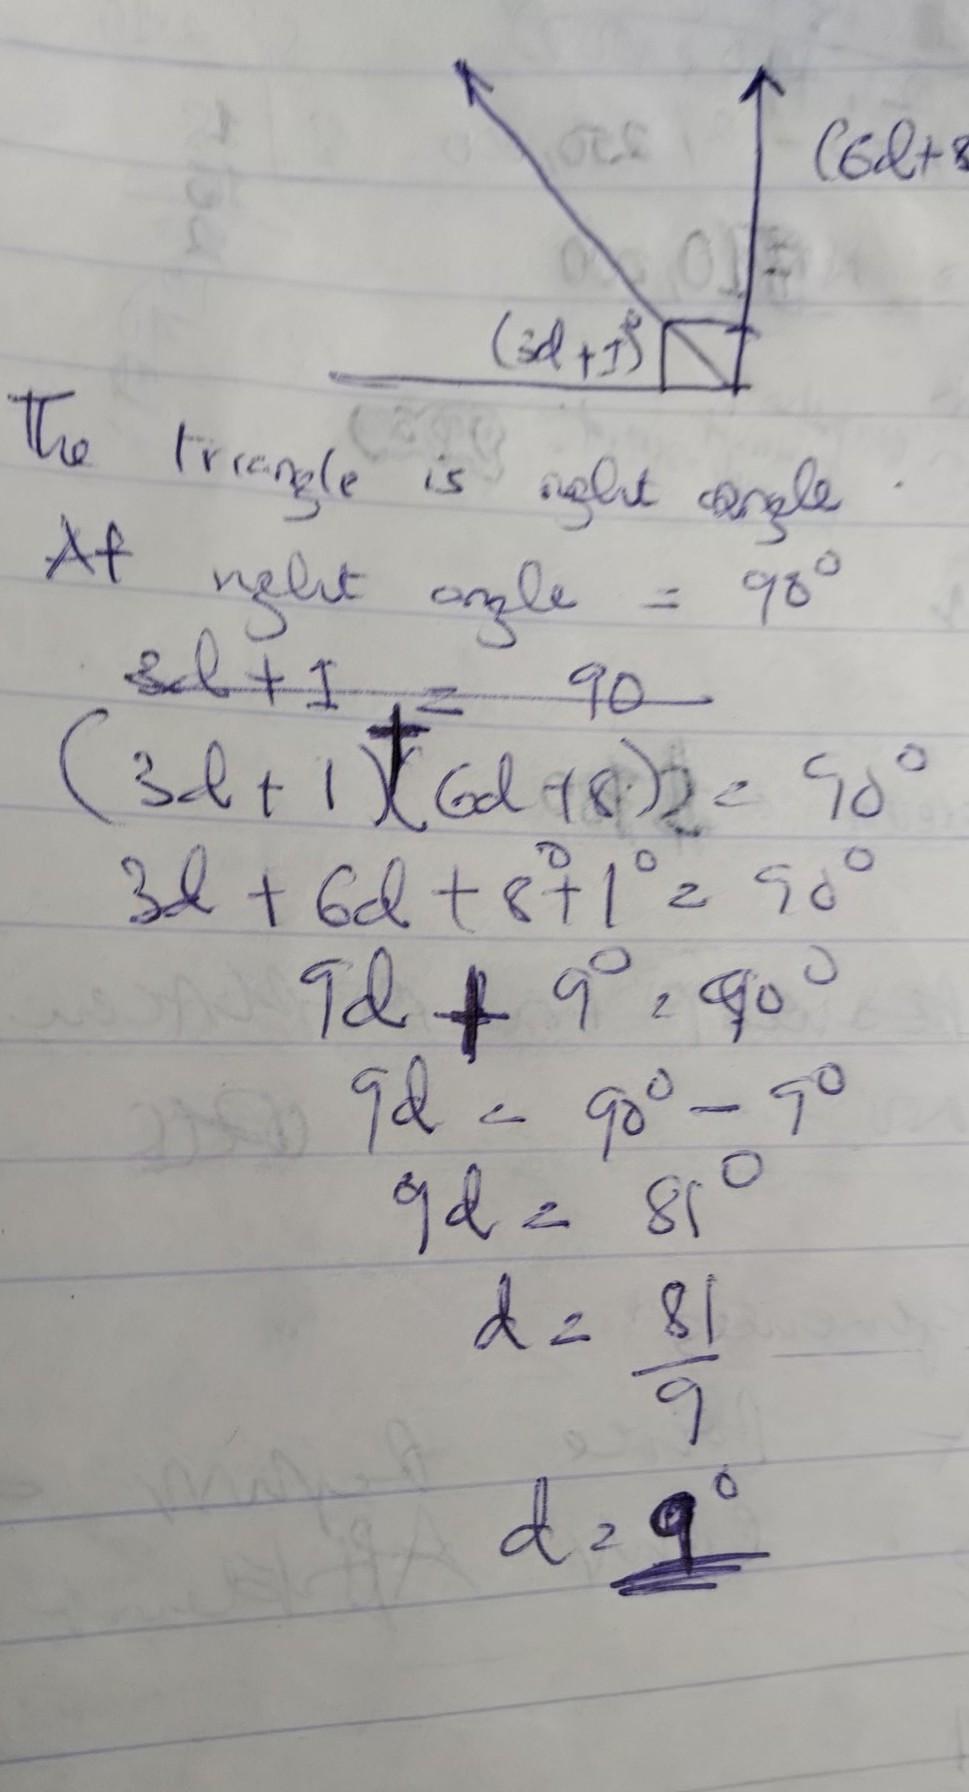 (6d+8
(3d+1)°
The triangle is right angle.
At right angle = 90°
3d + 1 = 90
(3d + 1)+(6d+8) = 90°
3d + 6d + 8°+1° = 90°
9d + 9° = 90°
9d = 90° - 9°
9d = 81°
d = 81
9
d = 9°